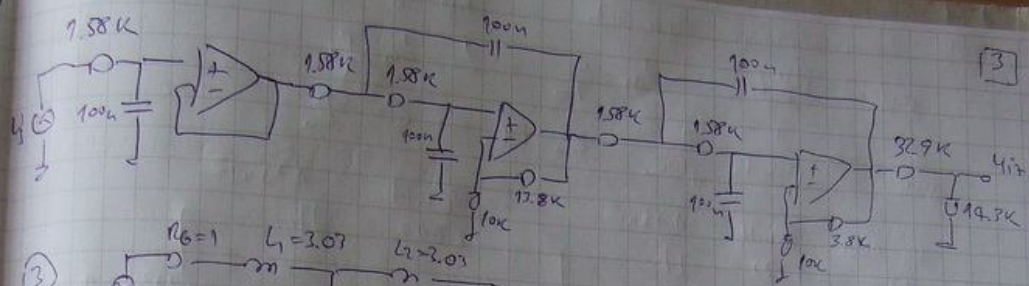 1.58K
100n
+
−
1.58K
1.58K
100n
100n
+
−
13.8K
10K
1.58K
1.58K
100n
100n
+
−
3.8K
10K
32.9K
14.3K
3
3
RG=1
L1=3.03
L2=3.03